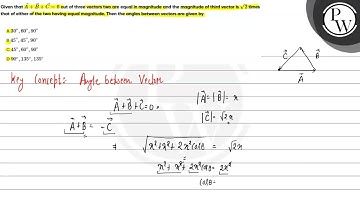 Given that A + B + C = 0 out of three vectors two are equal in magnitude and the magnitude of third vector is √2 times
that of either of the two having equal magnitude. Then the angles between vectors are given by
a. 30°, 60°, 90°
b. 45°, 45°, 90°
c. 45°, 60°, 90°
d. 90°, 135°, 135°
Key Concept: Angle between Vector
PW
C⃗ B⃗
A⃗
A⃗+B⃗+C⃗=0
|A⃗|=|B⃗|= x
|C⃗|= √2x
A⃗+B⃗ = -C⃗
⇒ √x²+x²+2x²Cosθ = √2x
x²+x²+2x²Cosθ= 2x²
Cosθ=